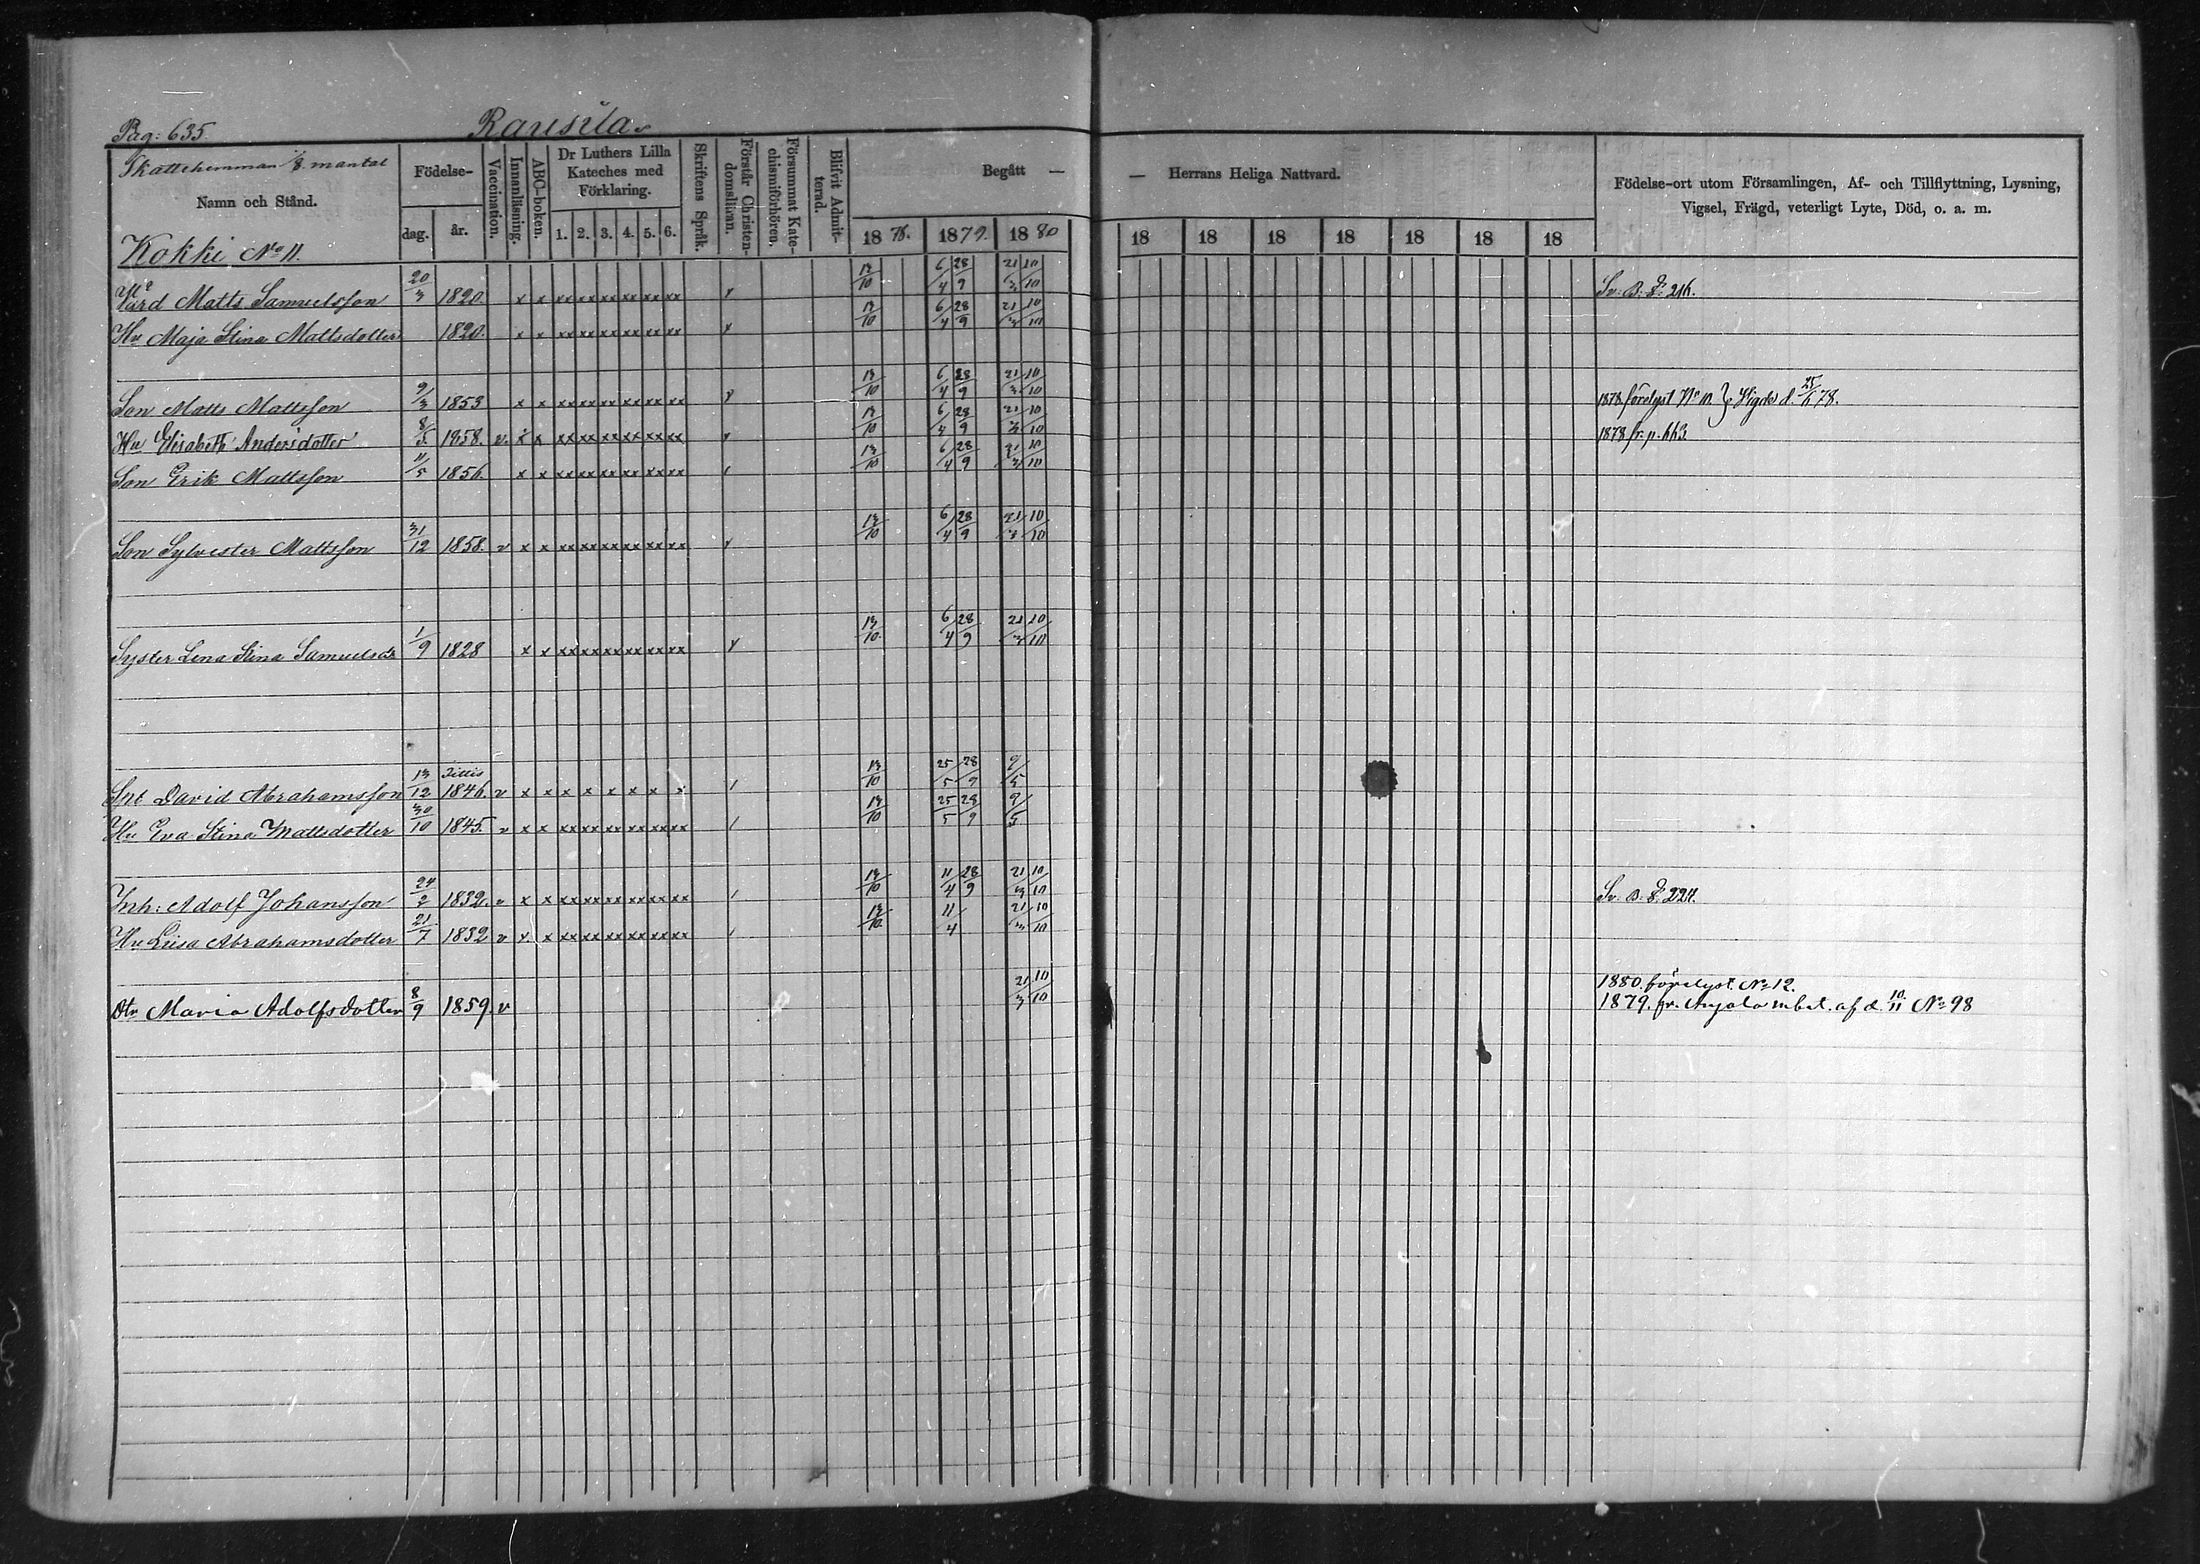 Pag: 635. Rausila
Skattehemman 1/8 mantal
Namn och Stånd.
Födelse-
dag. år.
Vaccination.
Innanläsning.
ABC-boken.
Dr Luthers Lilla Kateches med Förklaring.
1. 2. 3. 4. 5. 6.
Skriftens Språk.
Förstår Christendomsläran.
Försummat Katechismiförhören.
Blifvit Admitterad.
Begått — — Herrans Heliga Nattvard.
1878. 1879. 1880 18 18 18 18 18 18 18
Födelse-ort utom Församlingen, Af- och Tillflyttning, Lysning,
Vigsel, Frägd, veterligt Lyte, Död, o. a. m.
Kokki No 11.
Matts Samuelsson 20/3 1820. x x xx xx xx xx xx xx 13/10 6/4 28/9 21/3 10/10 Sv. B. 216.
Hu Maja Stina Mattsdotter 1820. x x xx xx xx xx xx xx 13/10 6/4 28/9 21/3 10/10
Son Matts Mattsson 9/3 1853 x x xx xx xx xx xx xx 13/10 6/4 28/9 21/3 10/10 1878. förelyst No 10 Vigde d. 78.
Hu Elisabeth Andersdotter 8/5 1858. v. x x xx xx xx xx xx xx 13/10 6/4 28/9 21/3 10/10 1878 fr. p. 443
Son Erik Mattsson 11/5 1856. x x xx xx xx xx xx xx 13/10 6/4 28/9 21/3 10/10
Son Sylvester Mattsson 31/12 1858. v x x xx xx xx xx xx xx 13/10 6/4 28/9 21/3 10/10
Syster Lena Stina Samuelsdr 1/9 1828 x x xx xx xx xx xx xx 13/10 6/4 28/9 21/3 10/10
Sput David Abrahamsson 13/12 1846. v x x x x x x x x 13/10 25/5 28/9 9/5
Hu Eva Stina Mattsdotter 30/10 1845. v x x xx xx xx xx xx xx 13/10 25/5 28/9 9/5
Inh: Adolf Johansson 24/2 1832. v x x xx xx xx xx xx xx 13/10 11/4 28/9 21/3 10/10 Sv. B. 224.
Hu Liisa Abrahamsdotter 21/7 1832 v x x xx xx xx xx xx xx 13/10 11/4 21/3 10/10
1880. förelyst. No 12.
Dtr Maria Adolfsdotter 8/9 1859. v 21/3 10/10 1879. fr. Anjala m bet. af d. 10/11 No 98